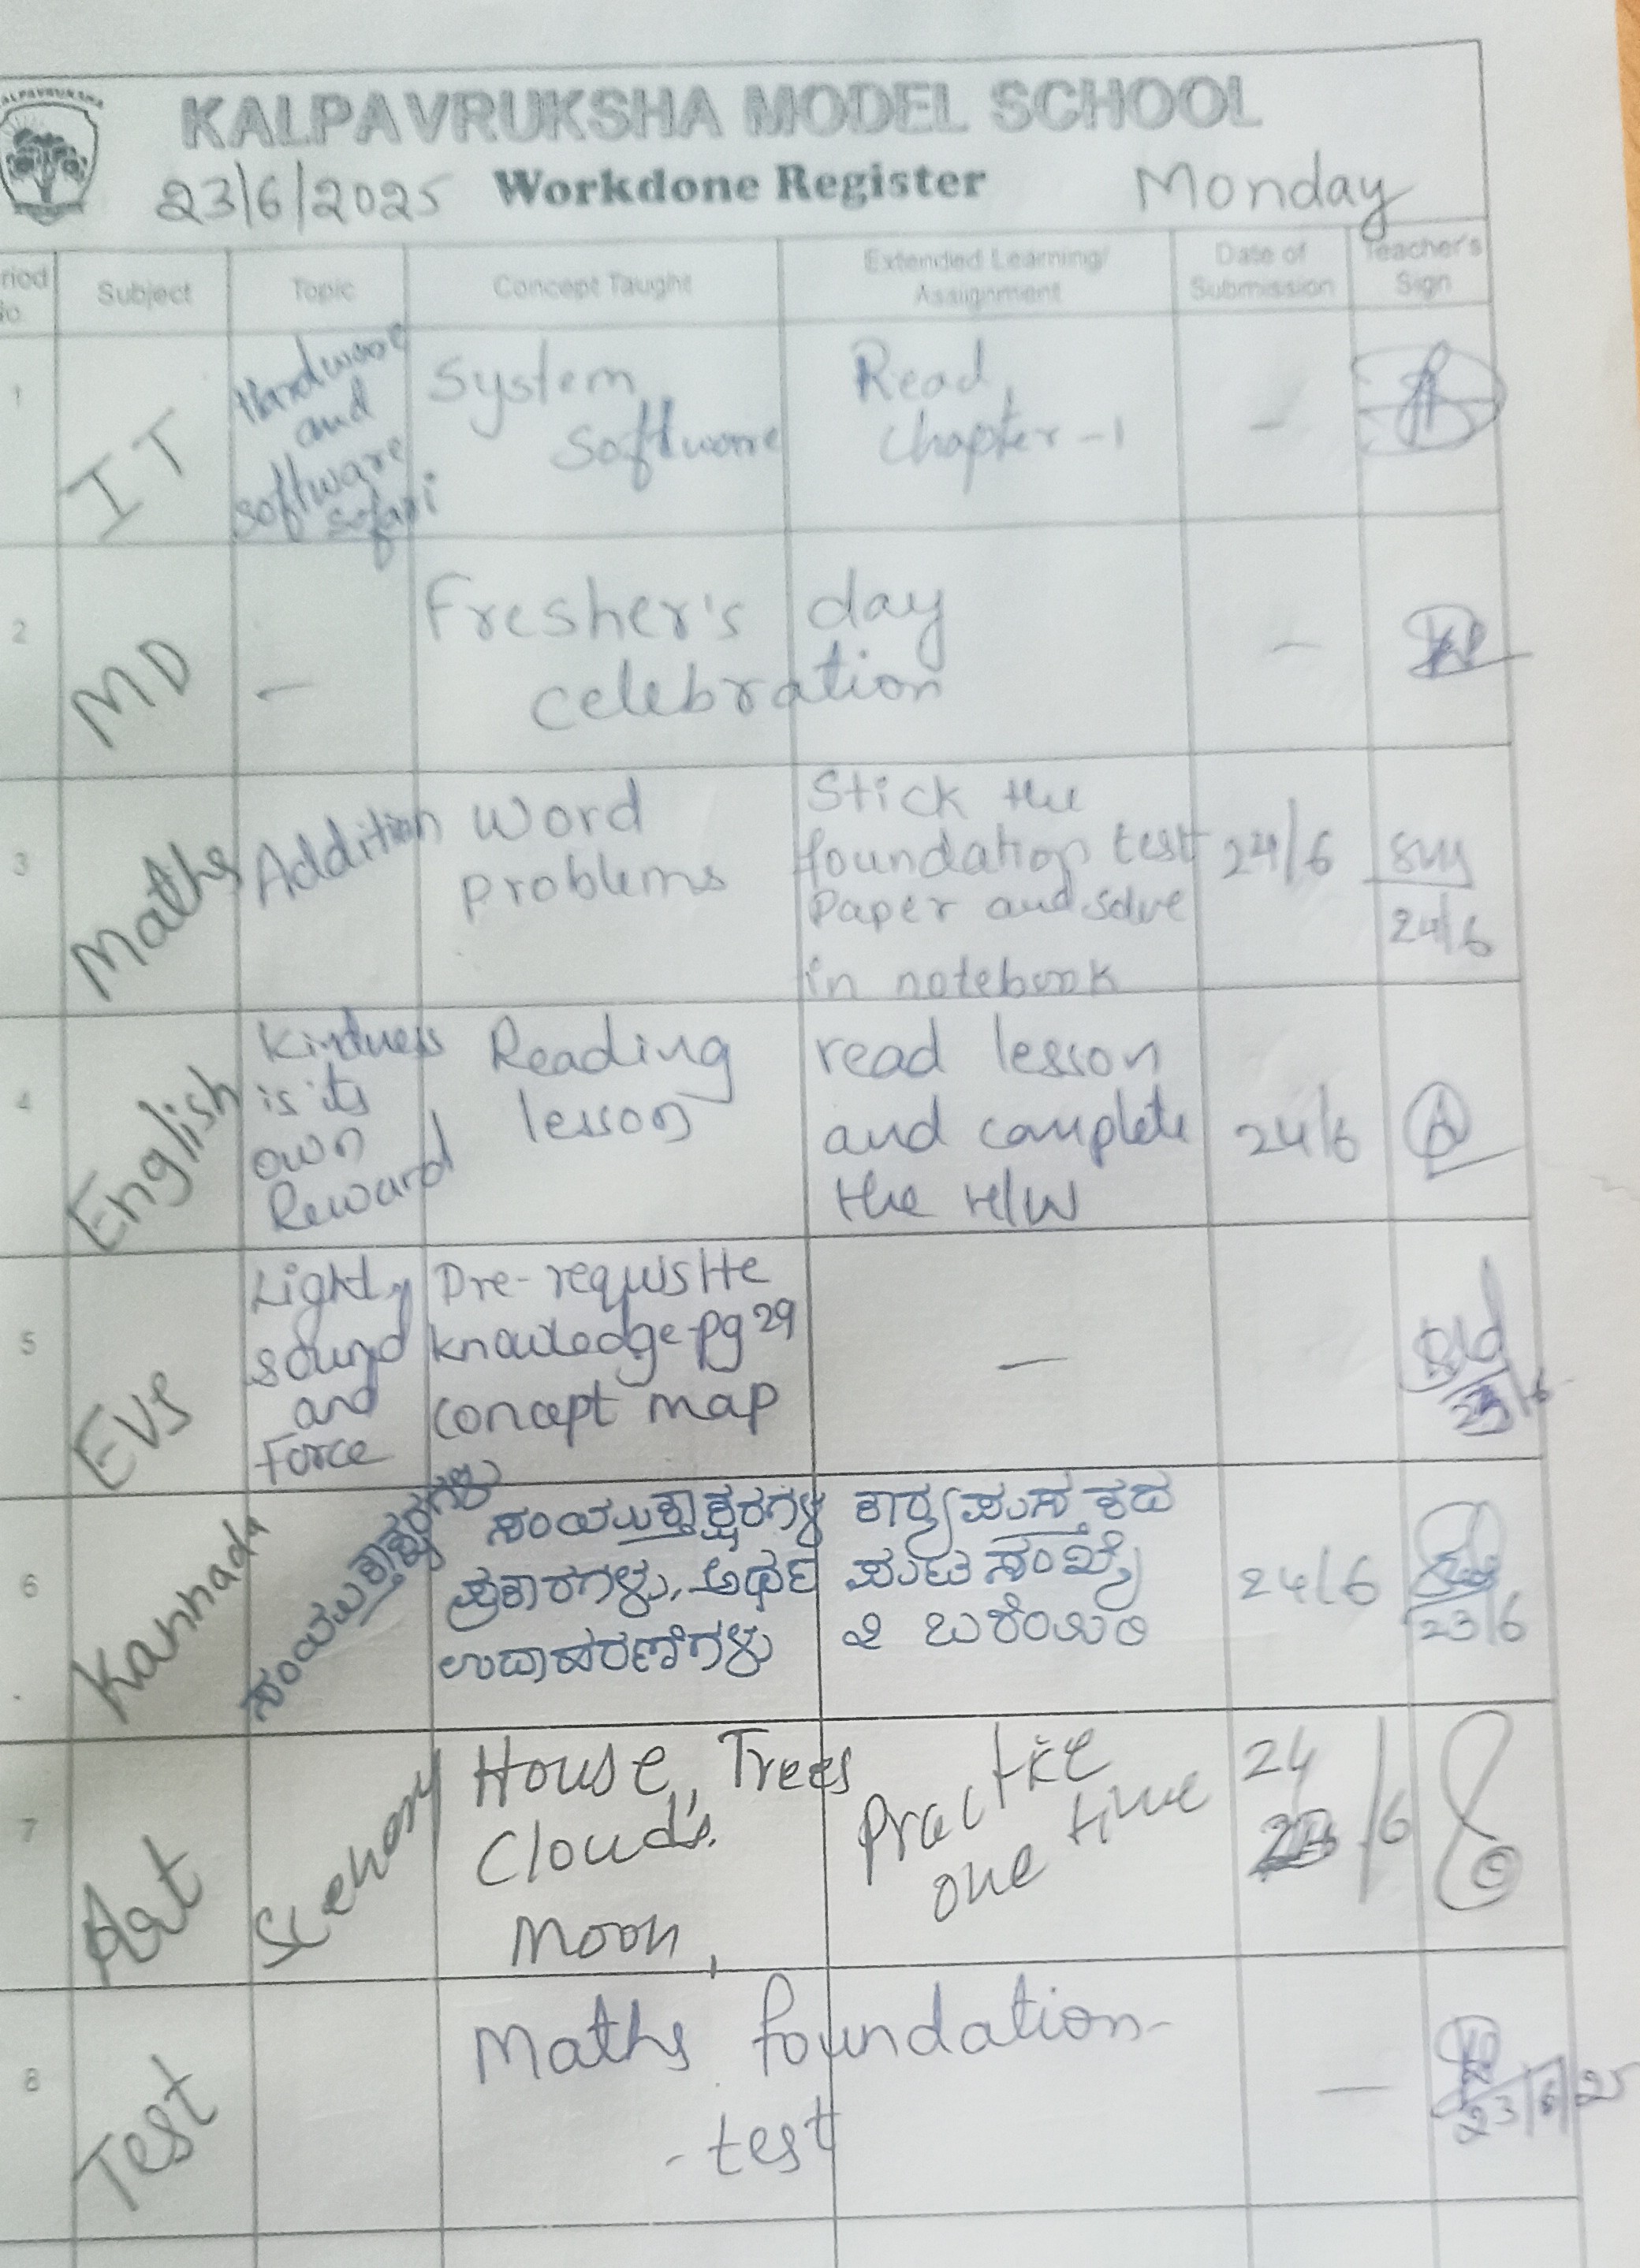 KALPAVRUKSHA
KALPAVRUKSHA MODEL SCHOOL
23/6/2025 Workdone Register Monday
Subject Topic Concept Taught Extended Learning/ Assignment Date of Submission Teacher's Sign
1 IT Hardware and software safari System software Read chapter-1 -
2 MD - Fresher's day celebration -
3 Maths Addition Word problems Stick the foundation test paper and solve in notebook 24/6 24/6
4 English Kindness is its own Reward Reading lesson read lesson and complete the H/W 24/6
5 EVS Light, sound and Force Pre-requisite knowledge-pg 29 concept map -
6 Kannada ಸಂಯುಕ್ತಾಕ್ಷರಗಳು ಸಂಯುಕ್ತಾಕ್ಷರಗಳ ಪ್ರಕಾರಗಳು, ಅರ್ಥ ಉದಾಹರಣೆಗಳು ಕಾರ್ಯಪುಸ್ತಕದ ಪುಟ ಸಂಖ್ಯೆ ೨ ಬರೆಯಿರಿ 24/6 23/6
7 Art Scenory House, Trees Clouds. Moon, Practice one time 24/6
8 Test Maths foundation- -test - 23/6/25